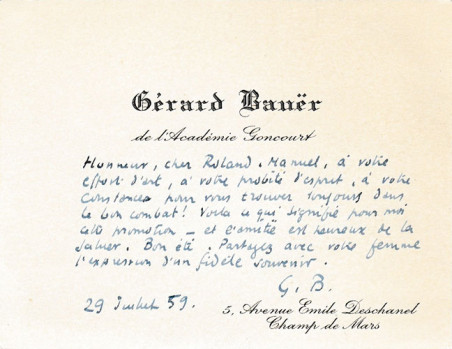 Gérard Bauër
de l'Académie Goncourt
Honneur, cher Roland-Manuel, à votre
effort d'art, à votre probité d'esprit, à votre
constance pour vous trouver toujours dans
le bon combat! Voilà ce qui signifie pour moi
cette promotion — et l'amitié est heureuse de la
saluer. Bon été. Partagez avec votre femme
l'expression d'un fidèle souvenir.
G. B.
29 Juillet 59.
5, Avenue Emile Deschanel
Champ de Mars